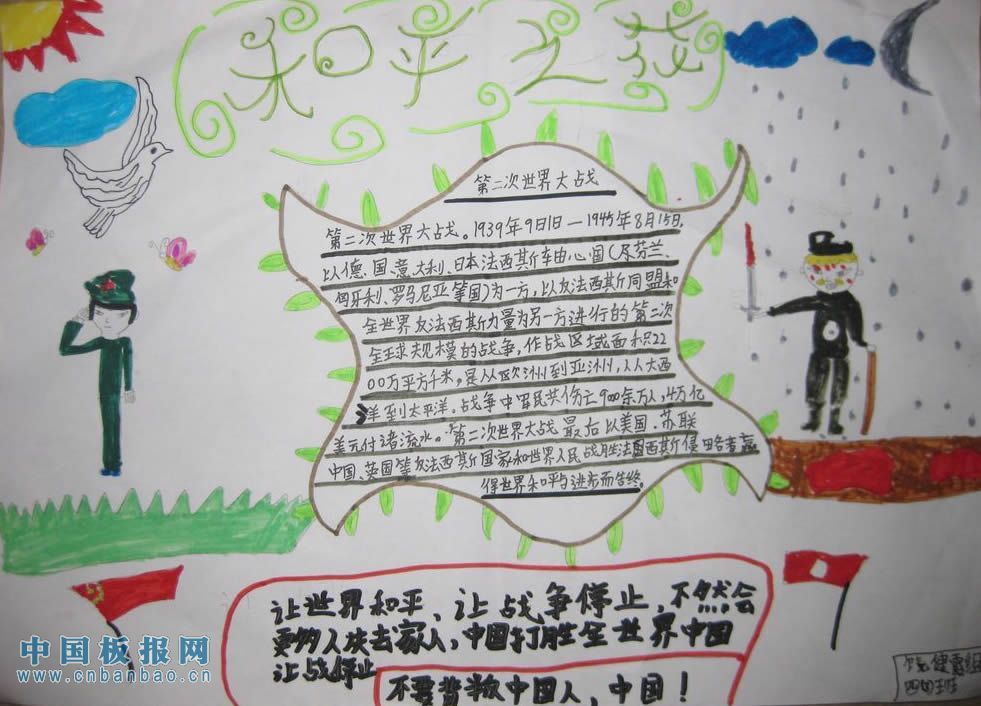 和平之战
第二次世界大战
第二次世界大战。1939年9日1日—1945年8月15日,
以德、国、意大利、日本法西斯车由心国(及芬兰、
匈牙利、罗马尼亚等国)为一方,以反法西斯同盟和
全世界反法西斯力量为另一方进行的第二次
全球规模的战争,作战区域面积22
00万平方千米,是从欧洲到亚洲,从大西
洋到太平洋。战争中军民共伤亡900余万人,4万亿
美元付诸流水。第二次世界大战最后以美国、苏联
中国、英国等反法西斯国家和世界人民战胜法西斯侵略者赢
得世界和平与进步而告终。
让世界和平、让战争停止,不然会
更多人失去家人,中国打胜全世界中国
让战停止
不要背叛中国人,中国!
中国板报网
www.cnbanbao.cn